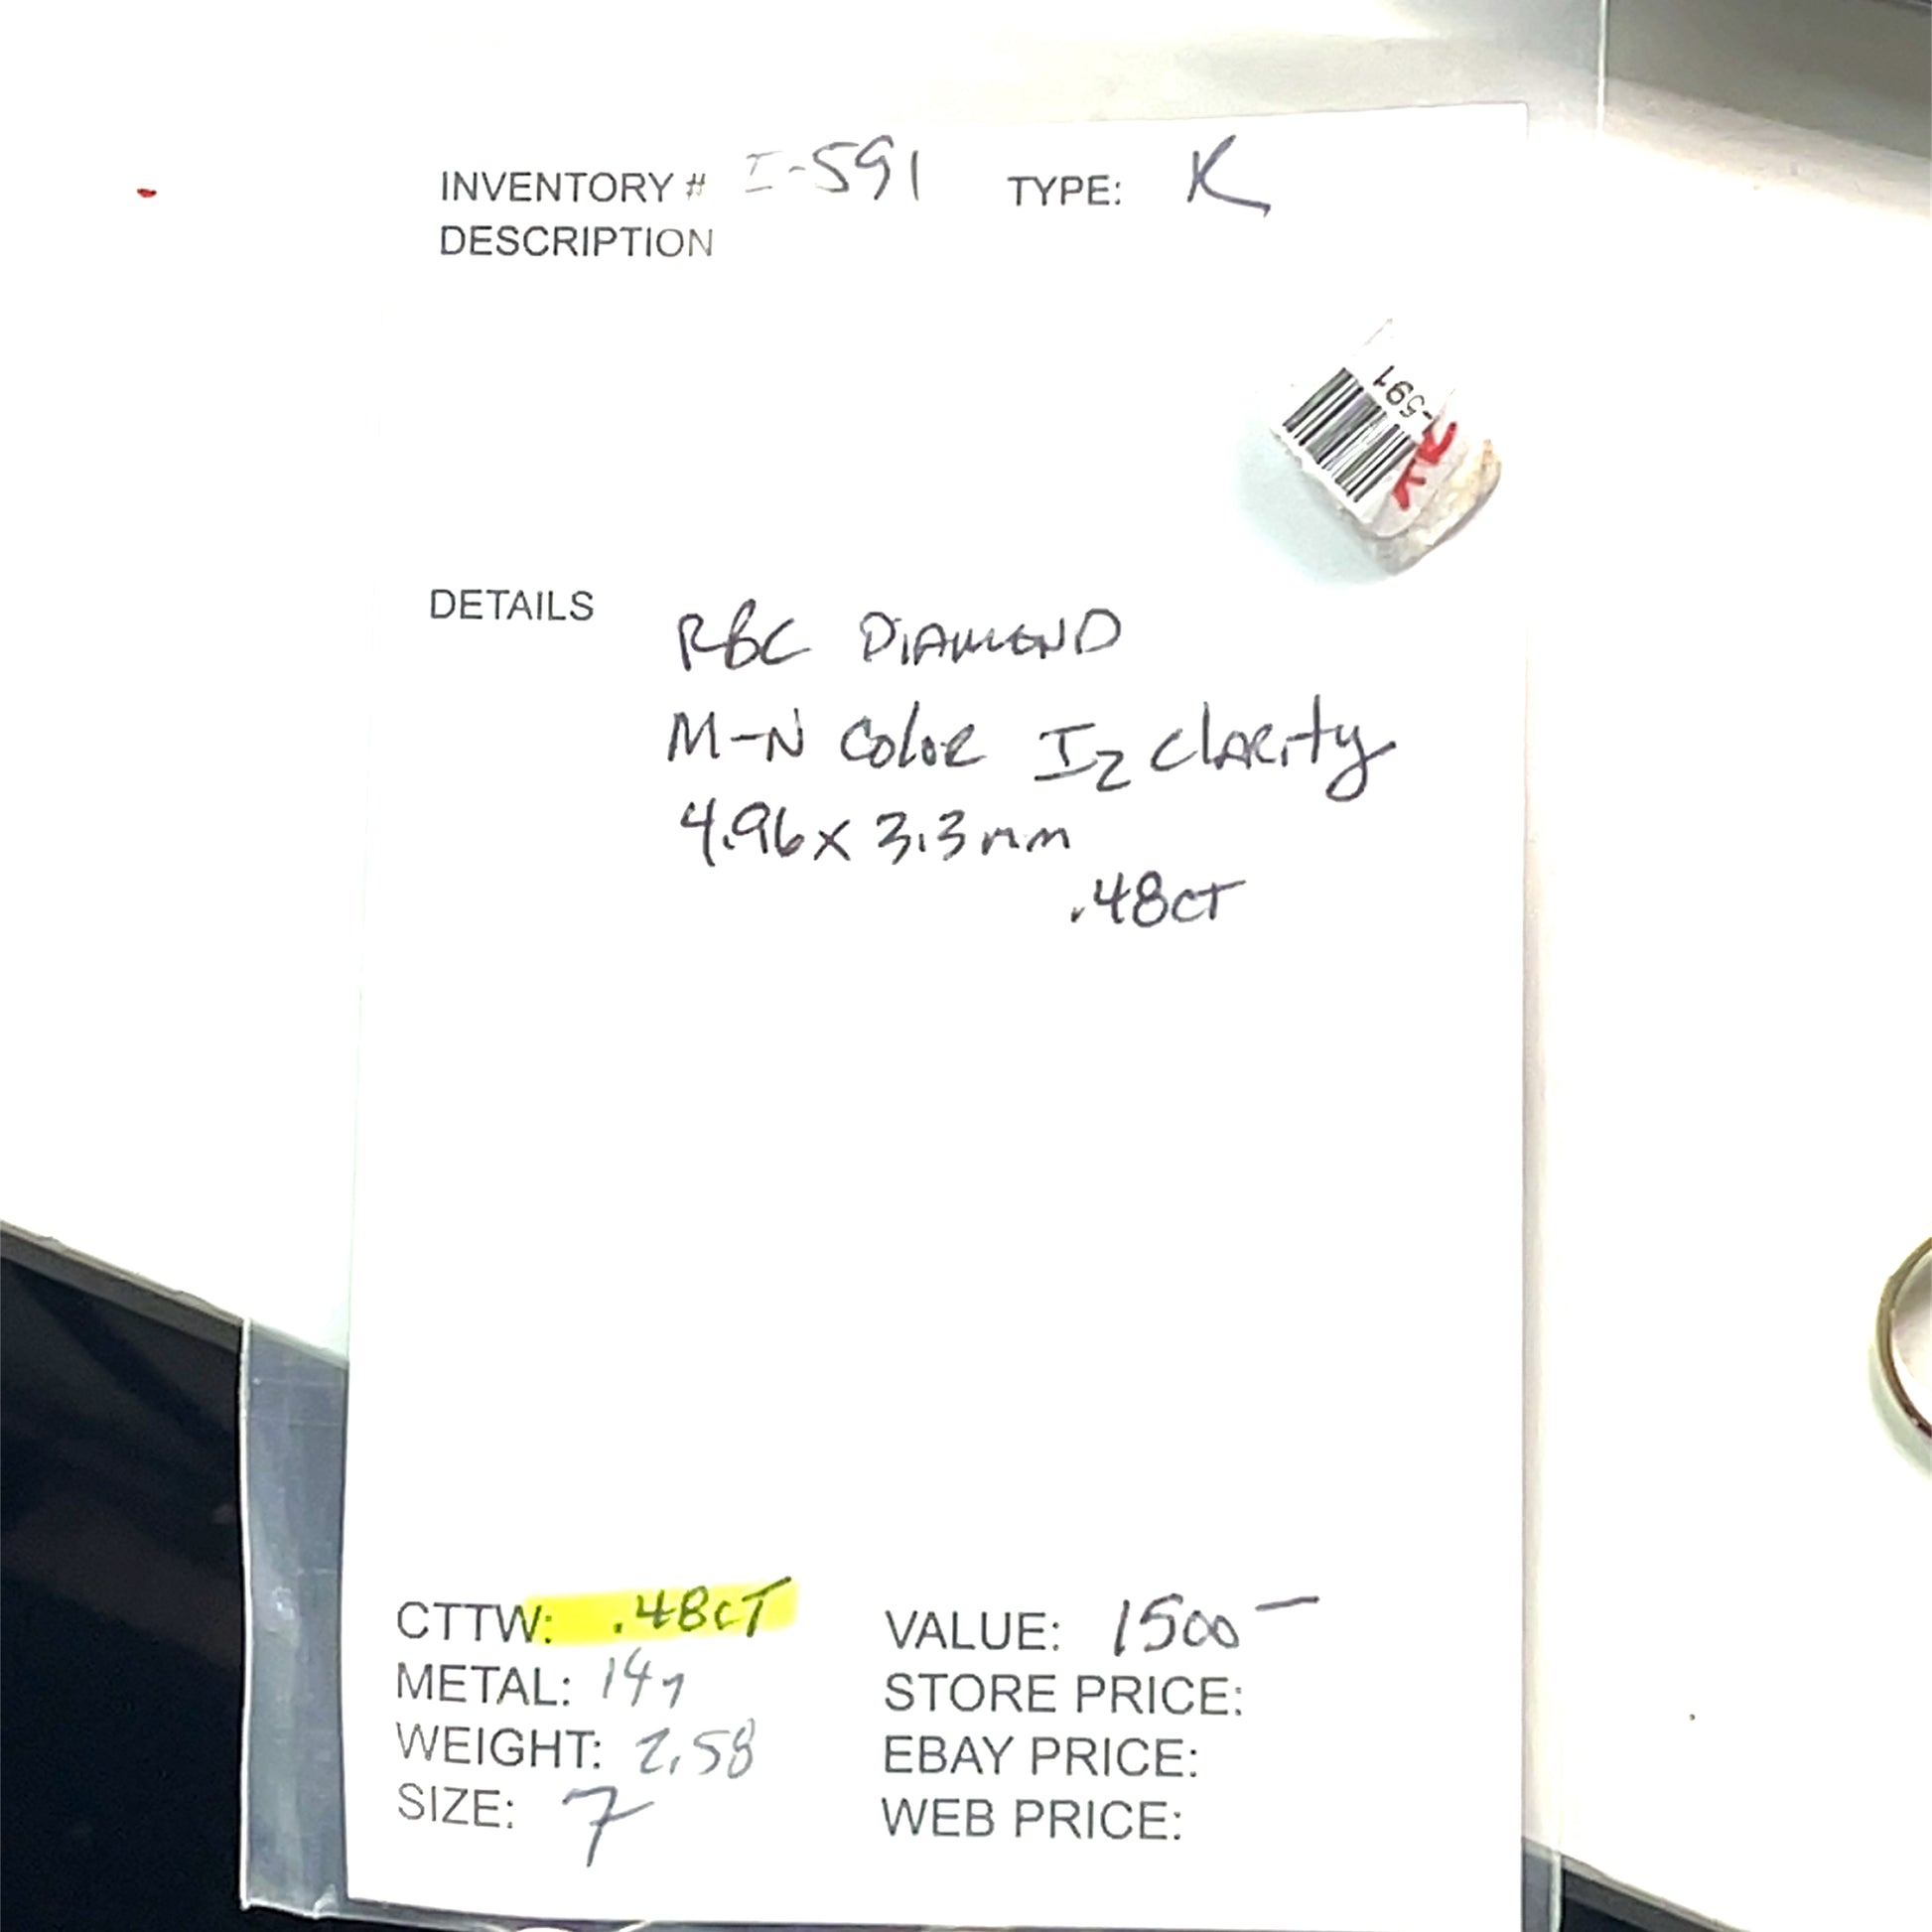 INVENTORY # I-591 TYPE: K
DESCRIPTION
-591
DETAILS
RBC DIAMOND
M-N Color I2 Clarity
4.96 x 3.3mm
.48CT
CTTW: .48CT
METAL: 14y
WEIGHT: 2.58
SIZE: 7
VALUE: 1500-
STORE PRICE:
EBAY PRICE:
WEB PRICE: